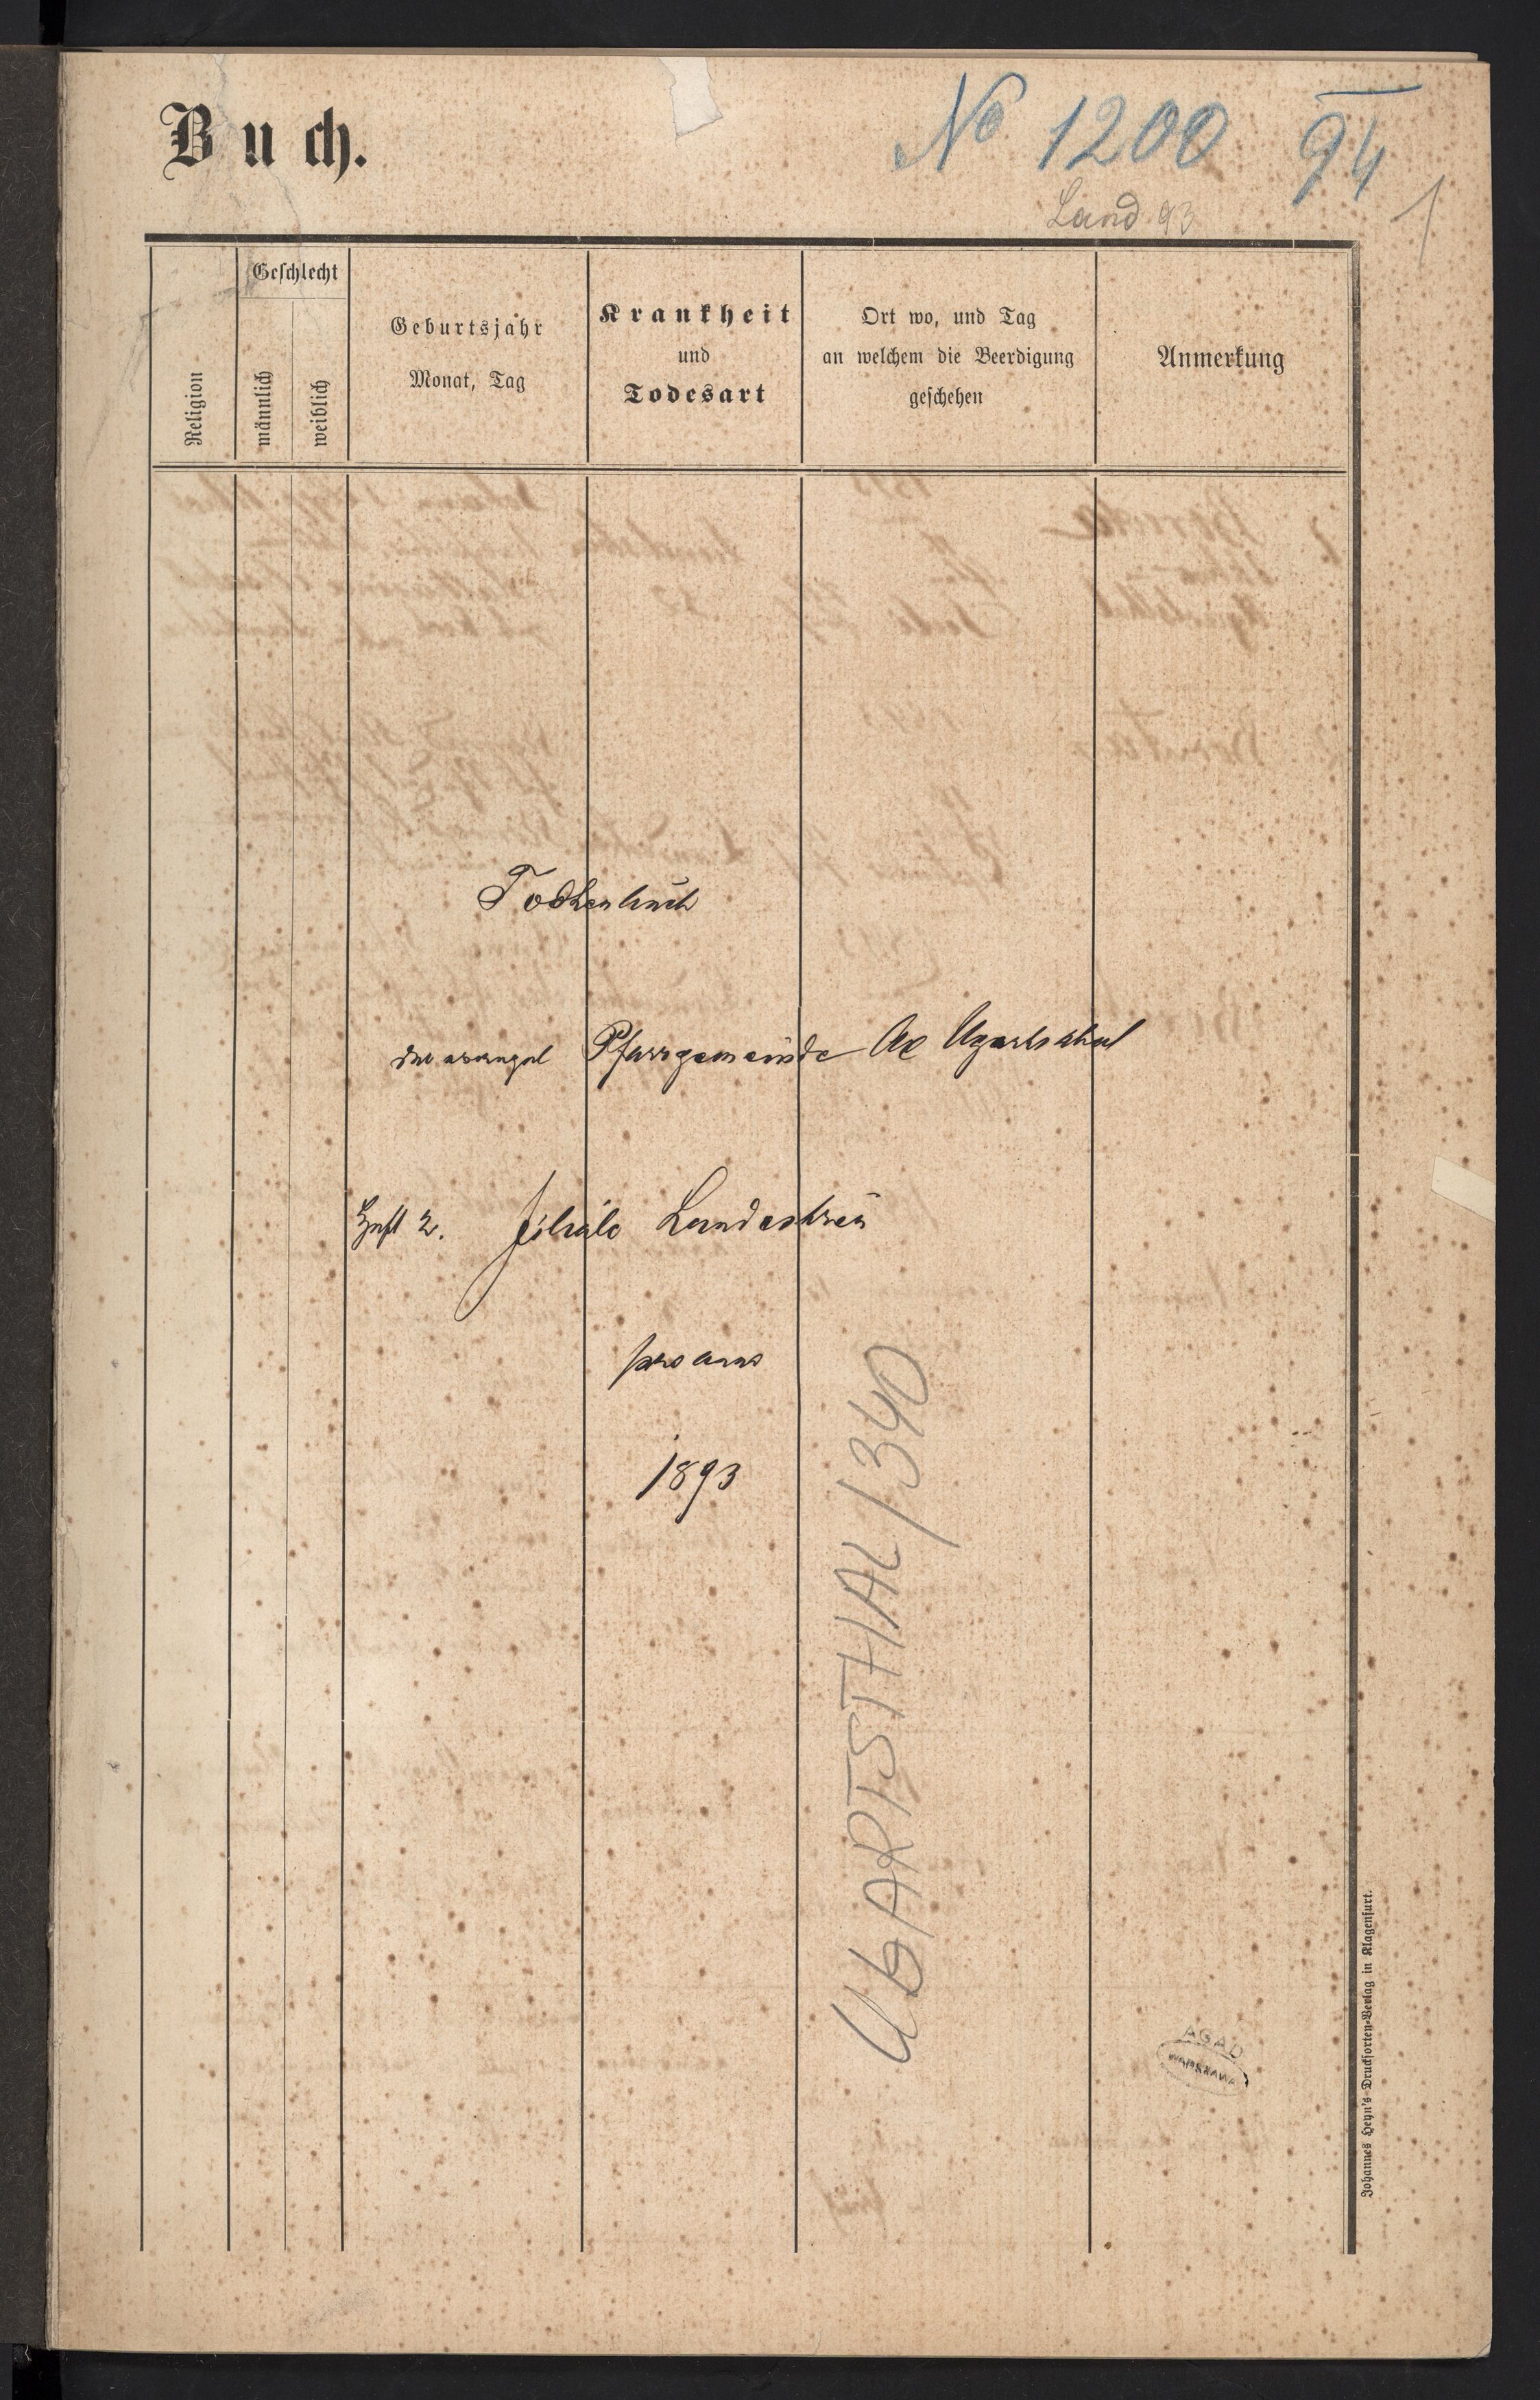 Buch.
No 1200 94
Land 93
1
Religion
Geschlecht
männlich
weiblich
Geburtsjahr
Monat, Tag
Krankheit
und
Todesart
Ort wo, und Tag
an welchem die Beerdigung
geschehen
Anmerkung
Todtenbuch
der evangel Pfarrgemeinde Ugartsthal
Heft 2. Filiale Landestreu
pro anno
1893
UGARTSTHAL / 340
AGAD
WARSZAWA
Johannes Heyn's Drucksorten-Verlag in Klagenfurt.